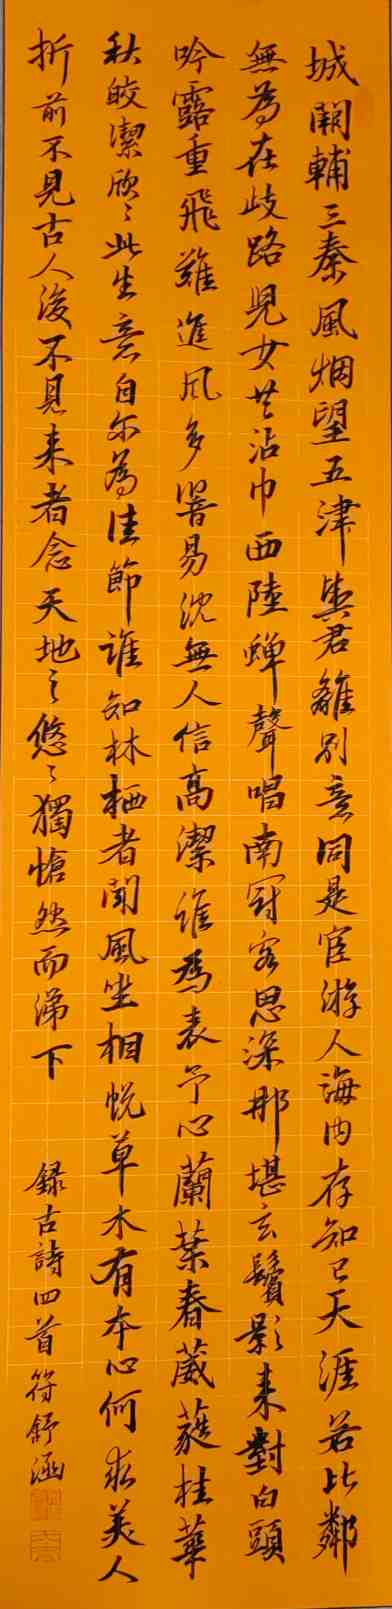 城闕輔三秦風烟望五津與君離別意同是宦游人海内存知己天涯若比鄰
無為在歧路兒女共沾巾西陸蟬聲唱南冠客思深那堪玄鬢影来對白頭
吟露重飛難進風多響易沈無人信高潔誰為表予心蘭葉春葳蕤桂華
秋皎潔欣〻此生意自尔為佳節誰知林栖者聞風坐相悦草木有本心何求美人
折前不見古人後不見来者念天地之悠〻獨愴然而涕下
録古詩四首符舒涵